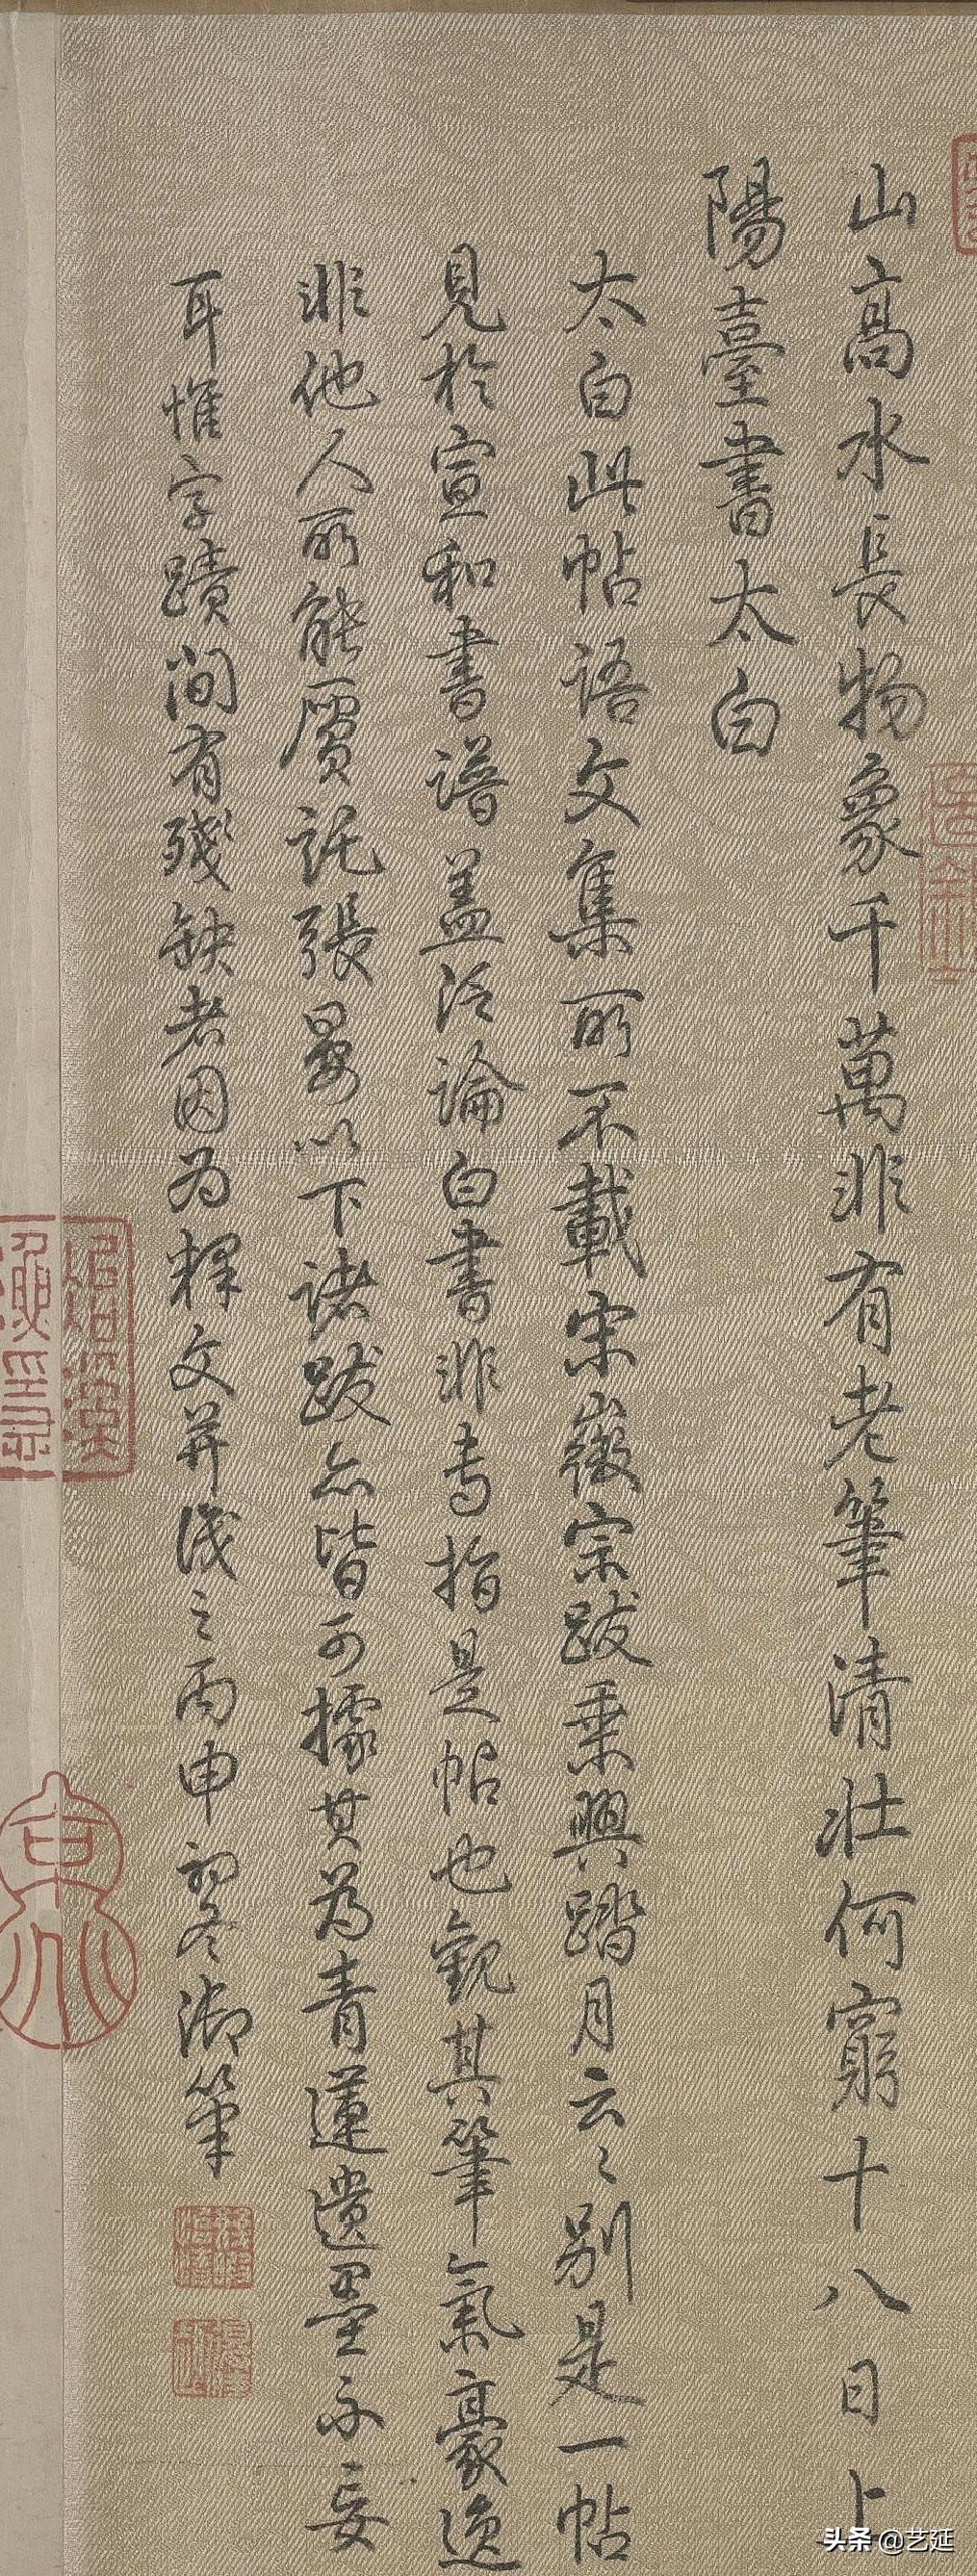 山高水長物象千萬非有老筆清壯何窮十八日上
陽臺書太白
太白此帖語文集所不載宋徽宗跋乘興踏月云〻別是一帖
見於宣和書譜蓋泛論白書非專指是帖也觀其筆氣豪逸
非他人所能贗託張晏以下諸跋亦皆可據其為青蓮遺墨不妄
耳惟字蹟間有殘缺者因為釋文并識之丙申初冬御筆
头条 @艺延